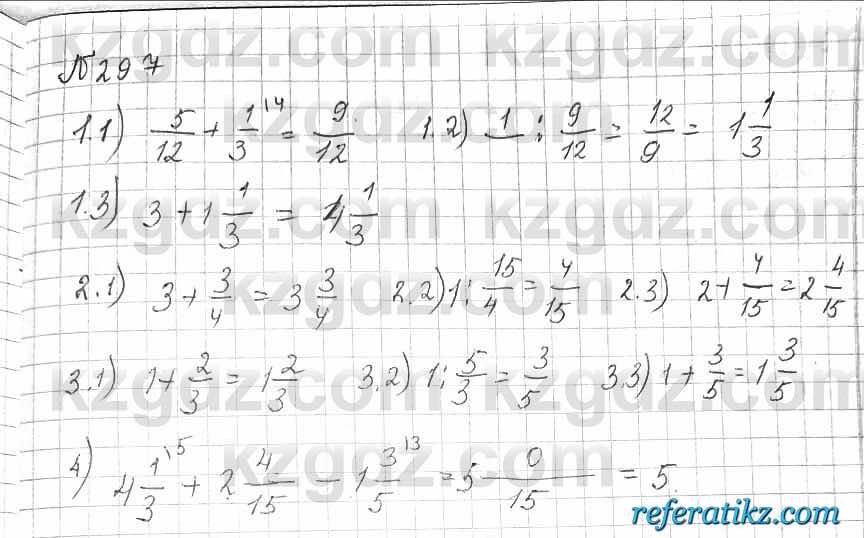 №297
1.1) 5/12 + 1/3 |4 = 9/12 1.2) 1 : 9/12 = 12/9 = 1 1/3
1.3) 3 + 1 1/3 = 4 1/3
2.1) 3 + 3/4 = 3 3/4 2.2) 1 : 15/4 = 4/15 2.3) 2 + 4/15 = 2 4/15
3.1) 1 + 2/3 = 1 2/3 3.2) 1 : 5/3 = 3/5 3.3) 1 + 3/5 = 1 3/5
4) 4 1/3 |5 + 2 4/15 - 1 3/5 |3 = 5 0/15 = 5
kzgdz.com
referatikz.com